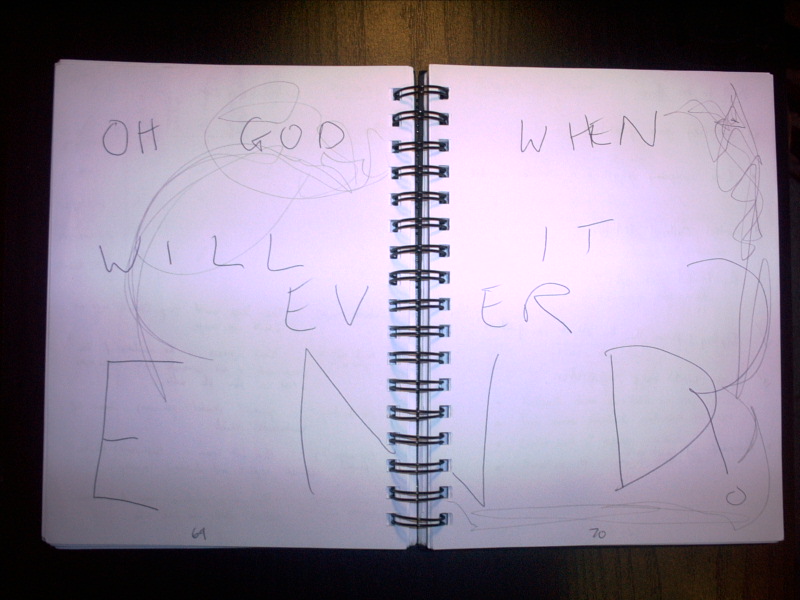 OH GOD WHEN
WILL IT
EVER
END?
69
70